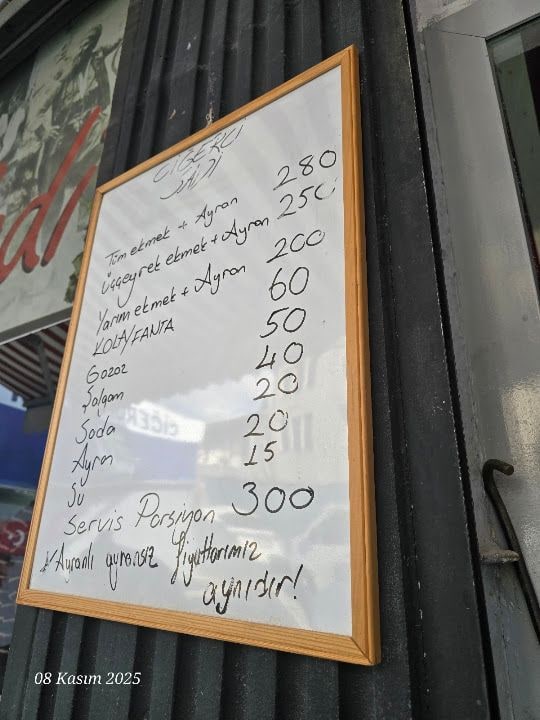 CİĞERCİ
Tüm ekmek + Ayran 280
üççeyrek ekmek + Ayran 250
Yarım ekmek + Ayran 200
KOLA/FANTA 60
Gazoz 50
Şalgam 40
Soda 20
Ayran 20
Su 15
Servis Porsiyon 300
Ayranlı ayransız fiyatlarımız
aynıdır!
08 Kasım 2025